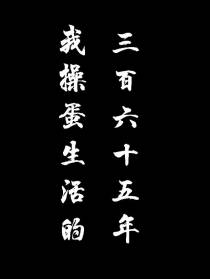 三百六十五年
我操蛋生活的